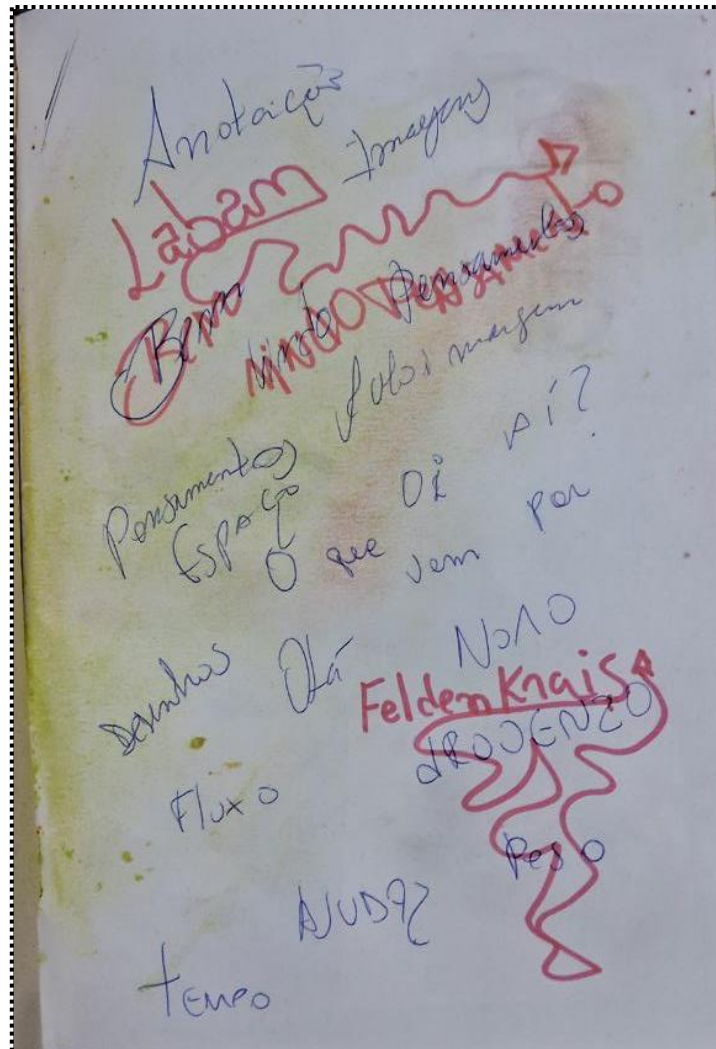 Anotação
Imagens
Laban
Bem vindo Pensamentos
Bem
Pensamentos
Espaço Oi Aí?
O que vem por
Desenhos Olá Novo
Feldenkrais
Fluxo
Peso
AJUDAR
tempo